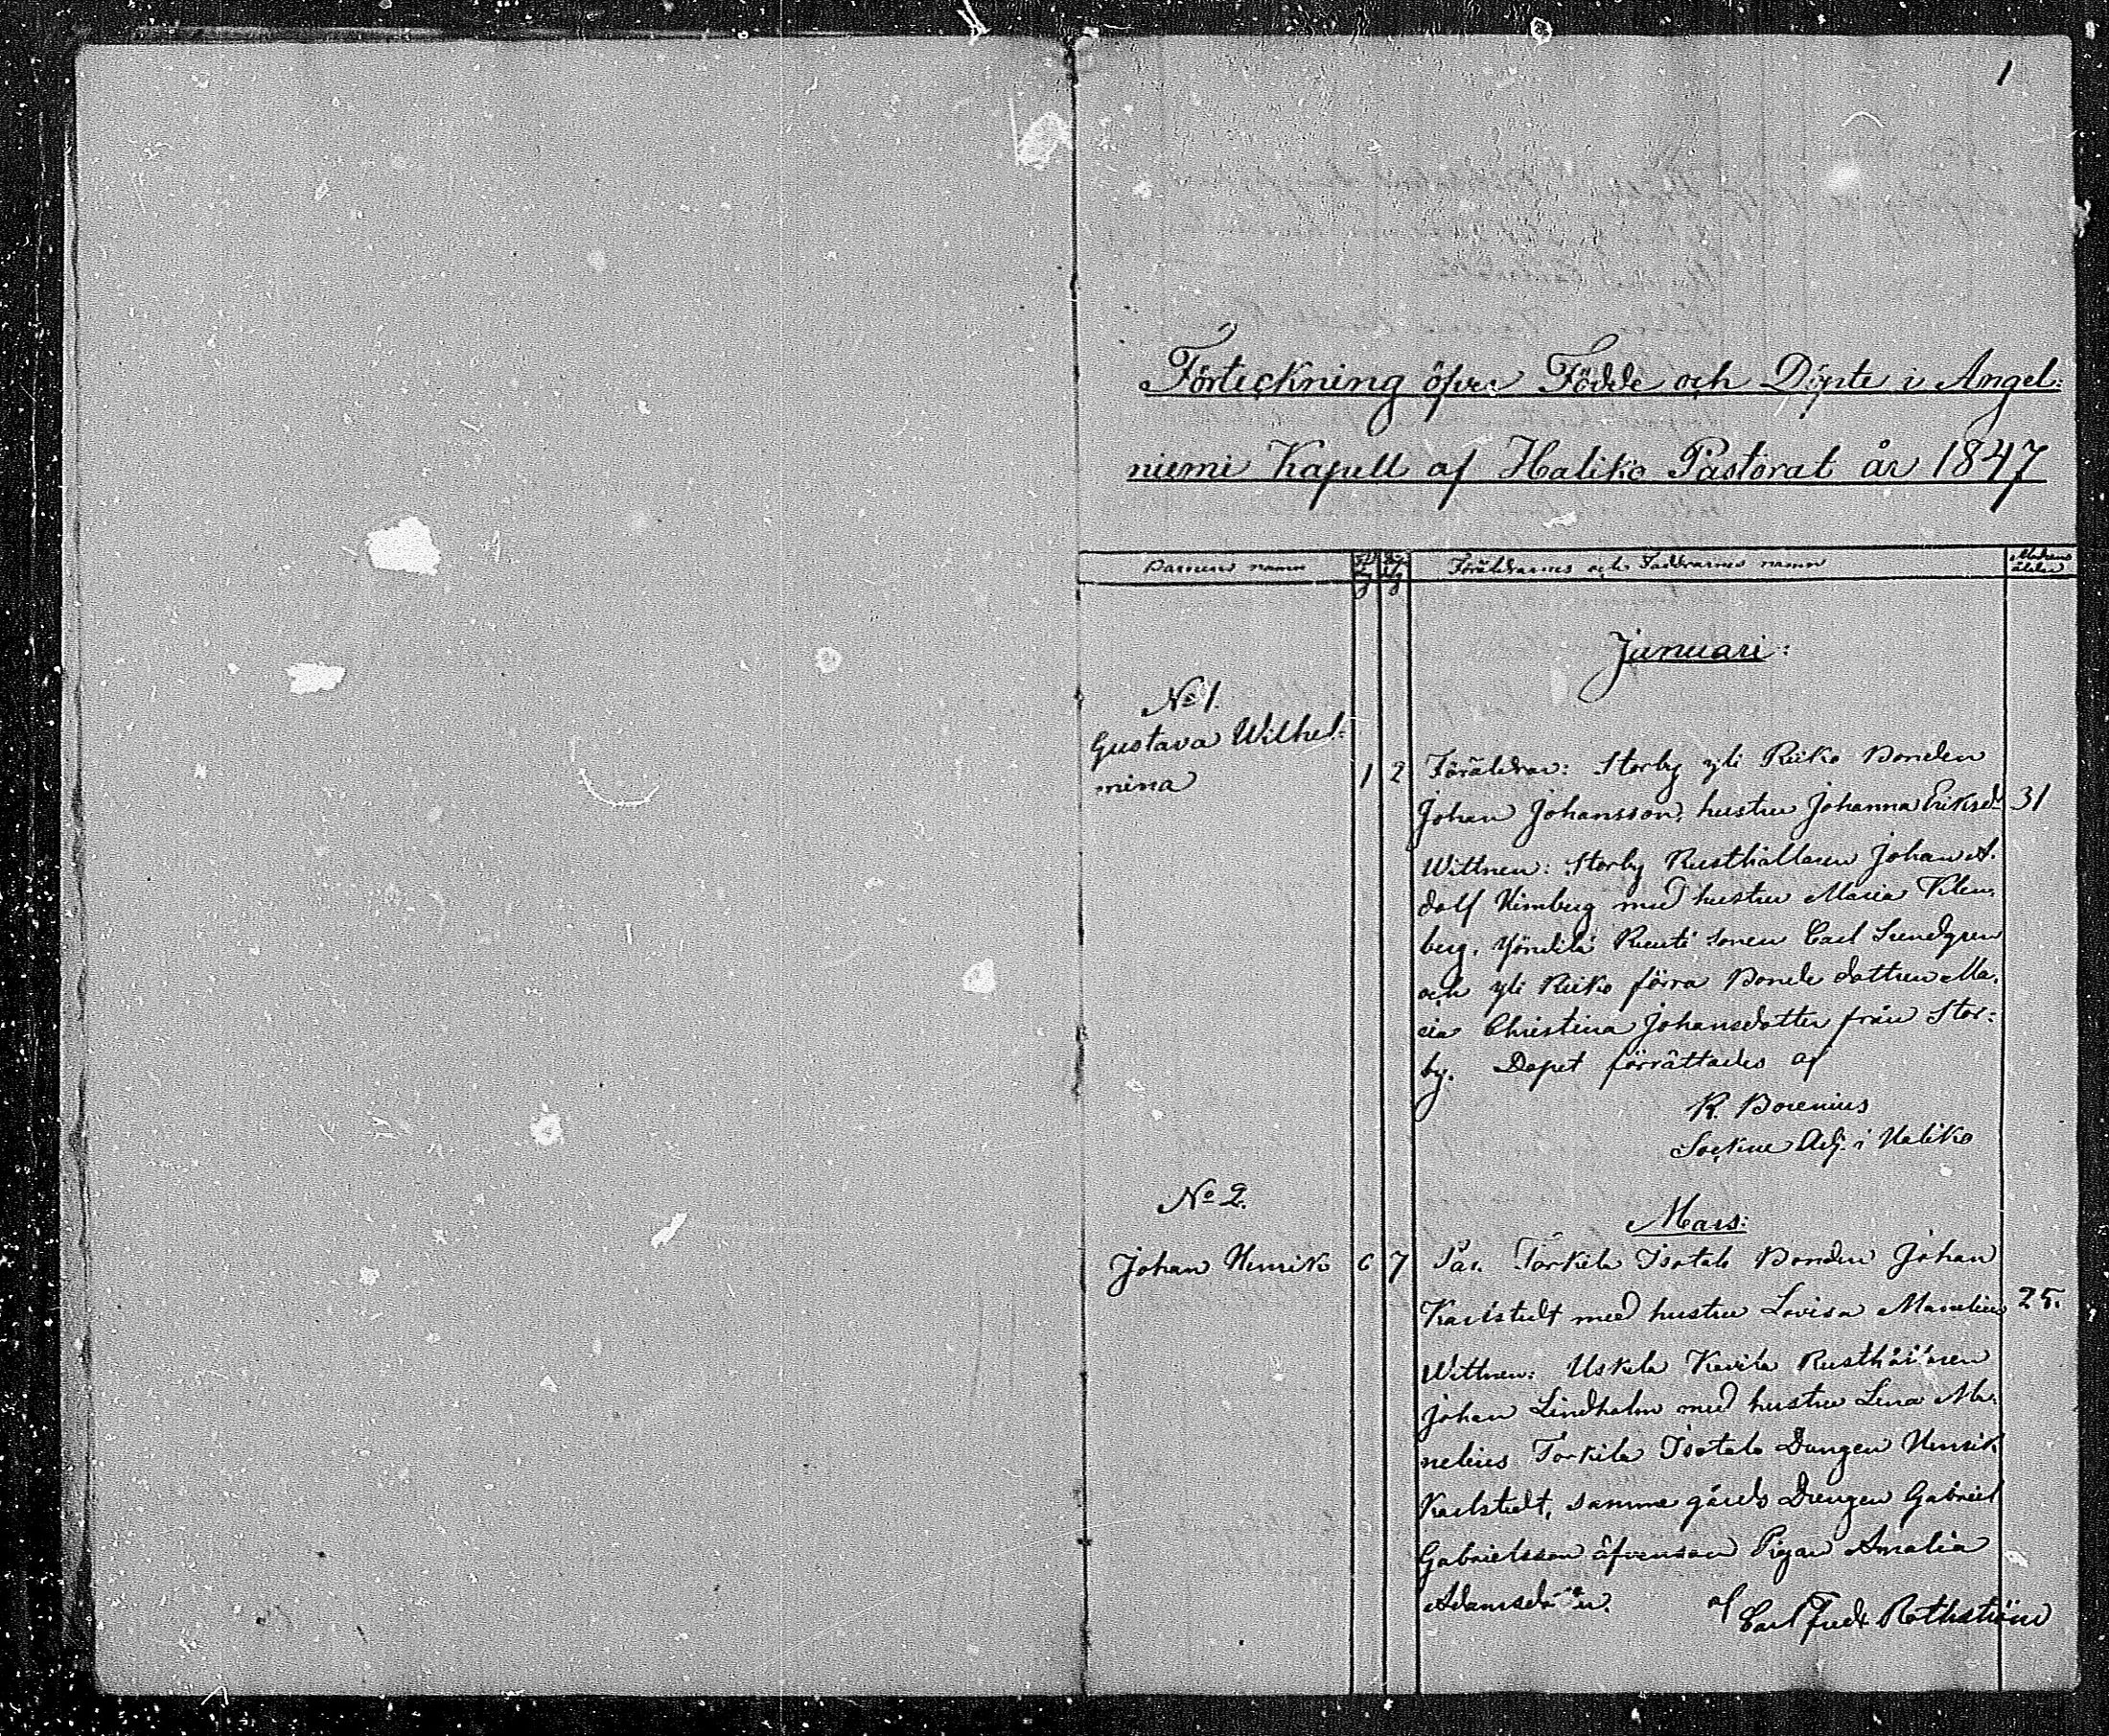 1
Förteckning öfver Födde och Döpte i Angel:
niemi Kapell af Haliko Pastorat år 1847
Barnens namn
Föräldrarnes och Faddrarnes namn
Modrens
ålder
Januari:
No 1.
Gustava Wilhel:
mina
1 2
Föräldrar: Storby yli Riiko Bonden
Johan Johansson, hustru Johanna Eriksdr
31
Wittnen: Storby Rusthållaren Johan A.
dolf Himberg med hustru Maria
berg, Yöntilä sonen Carl Lundgren
och yli Riiko förra Bonde dottren Ma.
ria Christina Johansdotter från Stor:
by. Dopet förrättades af
R. Borenius
Sockne Adj. i Haliko
No 2.
Mars:
Johan Henrik
6 7
Pär. Torkila Isotalo Bonden Johan
Karlstedt med hustru Lovisa Manelius
25.
Wittnen: Uskela Kavila Rusthållaren
Johan Lindholm med hustru Lena Ma.
nelius Torkila Isotalo Drängen Henrik
Karlstedt, samma gårds Drengen Gabriel
Gabrielsson äfvensom Pigan Amalia
Adamsdotter.
af
Carl Fredr Rothström